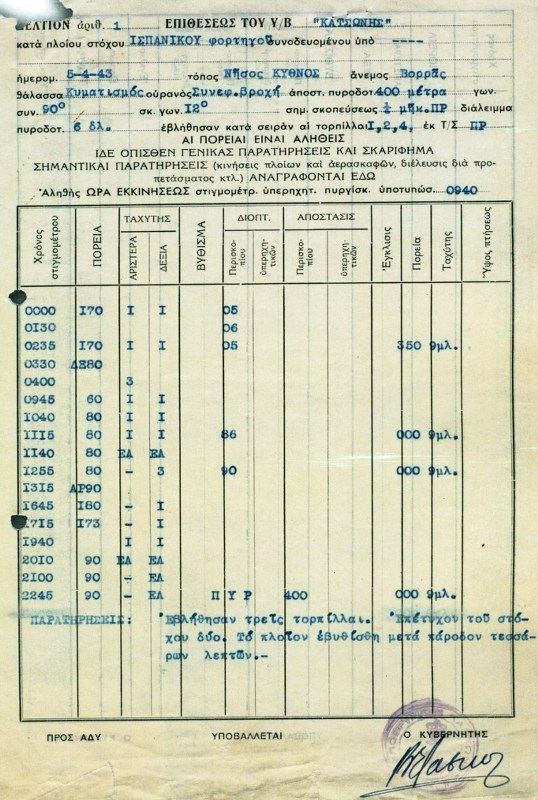 ΔΕΛΤΙΟΝ ἀριθ. 1 ΕΠΙΘΕΣΕΩΣ ΤΟΥ Υ/Β "ΚΑΤΣΩΝΗΣ"
κατὰ πλοίου στόχου ΙΣΠΑΝΙΚΟΥ φορτηγοῦ συνοδευομένου ὑπὸ ----
ἡμερομ. 5-4-43 τόπος Νῆσος ΚΥΘΝΟΣ ἄνεμος Βορρᾶς
θάλασσα Κυματισμός οὐρανὸς Συνεφ.βροχή ἀποστ. πυροδοτ. 400 μέτρα γων.
συν. 90° σκ. γων. Ι2° σημ. σκοπεύσεως ½ μῆκ.ΠΡ διάλειμμα
πυροδοτ. 6 δλ. ἐβλήθησαν κατὰ σειρὰν αἱ τορπίλλαι Ι,2,4, ἐκ Τ/Σ ΠΡ
ΑΙ ΠΟΡΕΙΑΙ ΕΙΝΑΙ ΑΛΗΘΕΙΣ
ΙΔΕ ΟΠΙΣΘΕΝ ΓΕΝΙΚΑΣ ΠΑΡΑΤΗΡΗΣΕΙΣ ΚΑΙ ΣΚΑΡΙΦΗΜΑ
ΣΗΜΑΝΤΙΚΑΙ ΠΑΡΑΤΗΡΗΣΕΙΣ (κινήσεις πλοίων καὶ ἀεροσκαφῶν, διέλευσις διὰ προ-
πετάσματος κτλ.) ΑΝΑΓΡΑΦΟΝΤΑΙ ΕΔΩ
Ἀληθὴς ΩΡΑ ΕΚΚΙΝΗΣΕΩΣ στιγμομέτρ. ὑπερηχητ. πυργίσκ. ὑποτυπώσ. 0940
Χρόνος στιγμομέτρου ΠΟΡΕΙΑ ΤΑΧΥΤΗΣ ΑΡΙΣΤΕΡΑ ΔΕΞΙΑ ΒΥΘΙΣΜΑ ΔΙΟΠΤ. Περισκοπίου ὑπερηχητικῶν ΑΠΟΣΤΑΣΙΣ Περισκοπίου ὑπερηχητικῶν Ἔγκλισις Πορεία Ταχύτης Ὕψος πτήσεως
0000 Ι70 Ι Ι 05
0Ι30 06
0235 Ι70 Ι Ι 05 350 9μλ.
0330 ΔΕ80
0400 3
0945 60 Ι Ι
Ι040 80 Ι Ι
ΙΙΙ5 80 Ι Ι 86 000 9μλ.
ΙΙ40 80 ΕΛ ΕΛ
Ι255 80 - 3 90 000 9μλ.
Ι3Ι5 ΑΡ90
Ι645 Ι80 - Ι
Ι7Ι5 Ι73 - Ι
Ι940 Ι Ι
20Ι0 90 ΕΛ ΕΛ
2Ι00 90 - ΕΛ
2245 90 - ΕΛ Π Υ Ρ 400 000 9μλ.
ΠΑΡΑΤΗΡΗΣΕΙΣ: Ἐβλήθησαν τρεῖς τορπίλλαι. Ἐπέτυχον τοῦ στό-
χου δύο. Τό πλοῖον ἐβυθίσθη μετά πάροδον τεσσά-
ρων λεπτῶν.-
ΠΡΟΣ ΑΔΥ ΥΠΟΒΑΛΛΕΤΑΙ Ο ΚΥΒΕΡΝΗΤΗΣ